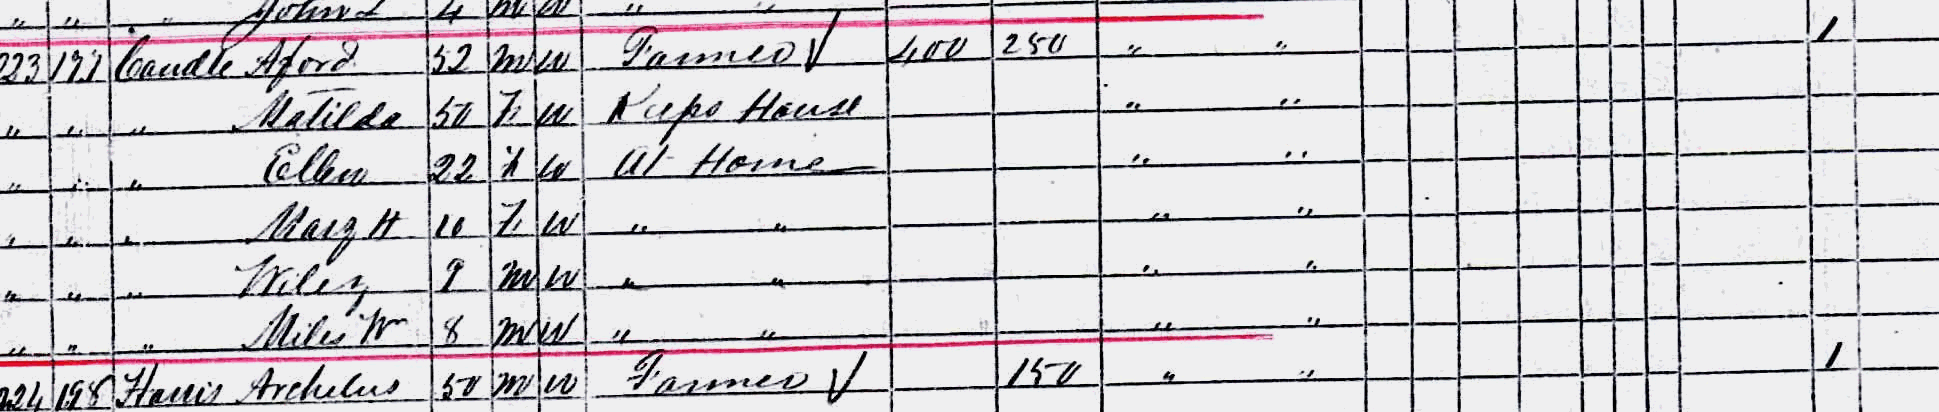 " " " John L 4 M W " "
223 197 Caudle Aford 52 M W Farmer √ 400 250 " " 1
" " " Matilda 50 F W Keeps House " "
" " " Ellen 22 F W At Home " "
" " " Mary H 10 F W " " " "
" " " Wiley 9 M W " " " "
" " " Miles Wm 8 M W " " " "
224 198 Harris Archelus 50 M W Farmer √ 150 " " 1